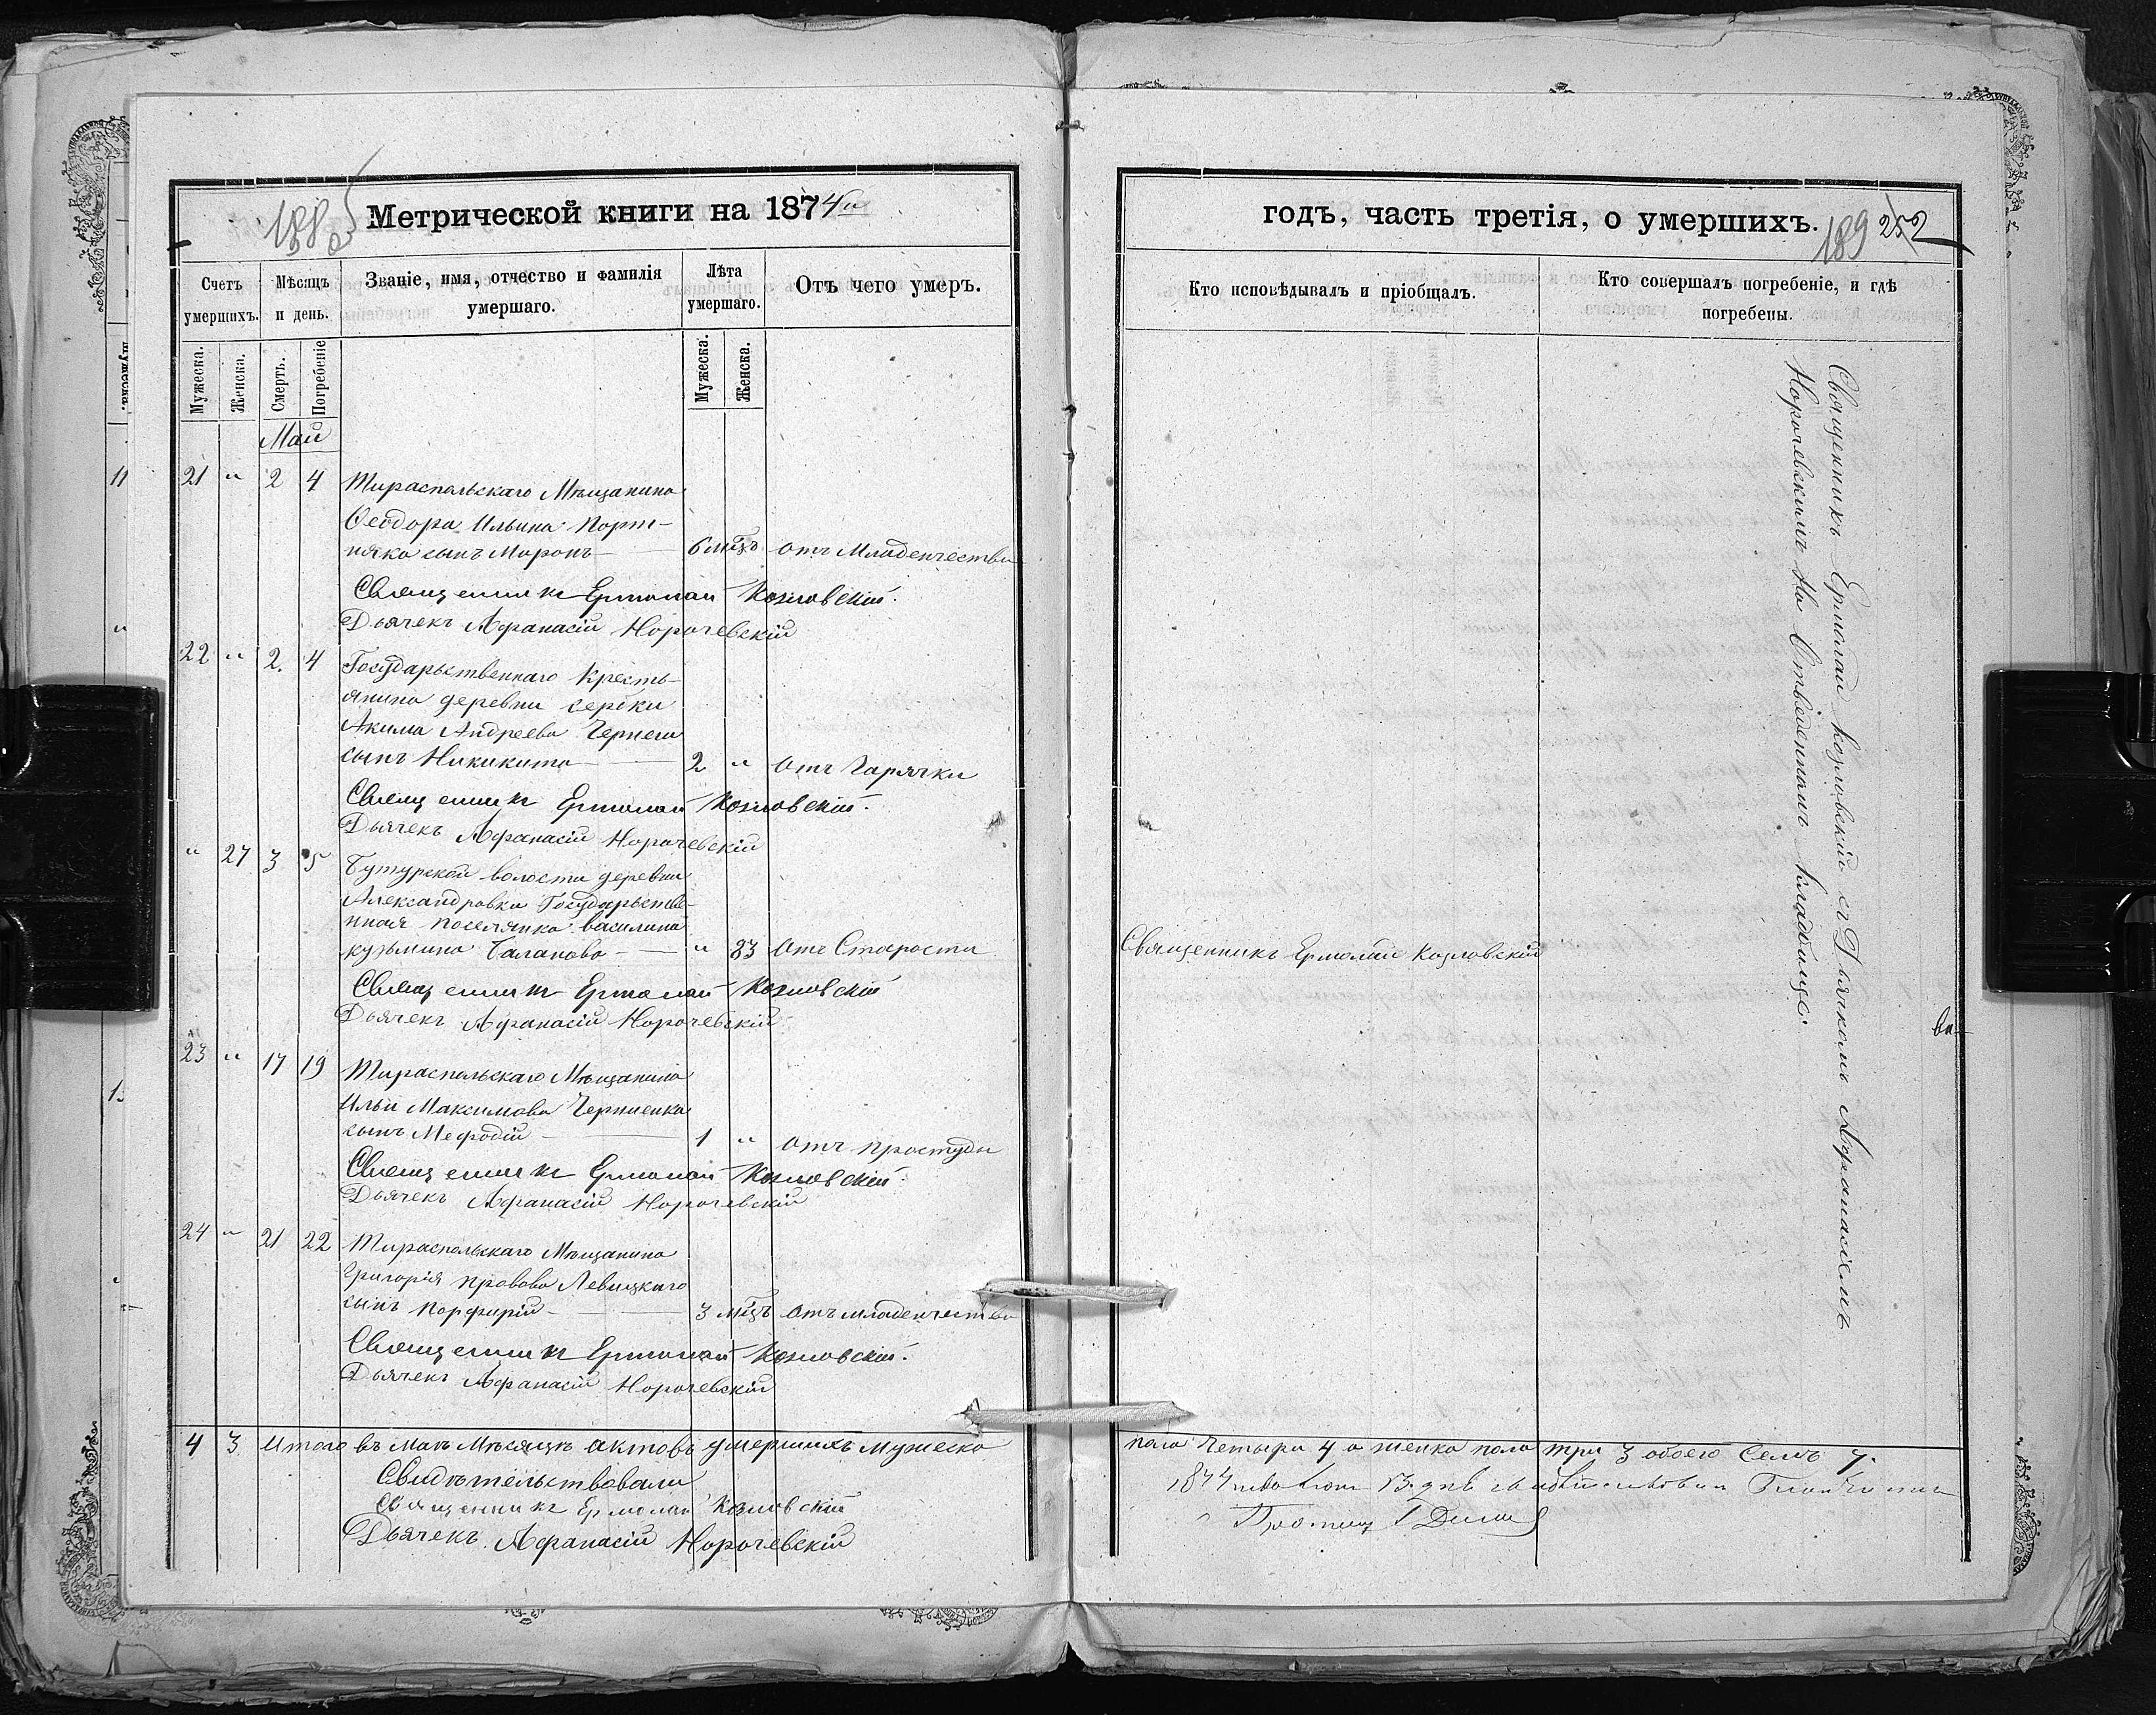 1885
Метрической книги на 1874й
Счетъ умершихъ.
Мѣсяцъ и день.
Званіе, имя, отчество и фамилія умершаго.
Лѣта умершаго.
Отъ чего умеръ.
Мужеска.
Женска.
Смерть.
Погребеніе
Мужеска.
Женска.
Май
21 " 2 4 Тираспольскаго Мѣщанина
Феодора Ильина Порт-
няка сынъ Миронъ — 6 мцъ отъ Младенчества
Священникъ Ермолай Козловскій.
Дьячекъ Афанасій Норочевскій
22 " 2. 4 Государьственнаго Кресть-
янина деревни сербки
Акима Андреева Чернега
сынъ Никикита — 2 " отъ Гарячки
Священникъ Ермолай Козловскій.
Дьячекъ Афанасій Норочевскій
" 27 3 5 Бутурской волости деревни
Александровки Государьстве-
нная поселянка василина
кузьмина Баланова — " 83 отъ Старости
Священникъ Ермолай Козловскій
Дьячекъ Афанасій Норочевскій
23 " 17 19 Тираспольскаго Мѣщанина
Ильи Максимова Черненка
сынъ Мефодій — 1 " отъ простуды
Священникъ Ермолай Козловскій.
Дьячекъ Афанасій Норочевскій
24 " 21 22 Тираспольскаго Мѣщанина
Григорія Левицкаго
сынъ Порфирій — 3 мцъ отъ младенчества
Священникъ Ермолай Козловскій.
Дьячекъ Афанасій Норочевскій
4 3 Итого въ маѣ Мѣсяцѣ актовъ умершихъ мужеска
Свидѣтельствовали
Священникъ Ермолай Козловскій
Дьячекъ Афанасій Норочевскій
годъ, часть третія, о умершихъ.
189 252
Кто исповѣдывалъ и пріобщалъ.
Кто совершалъ погребеніе, и гдѣ погребены.
Священникъ Ермолай Козловскій
Священникъ Ермолай Козловскій съ Дьячкомъ Афанасіемъ
Норочевскимъ На Отведенномъ кладбище.
пола четыри 4 а женска пола три 3 обоего Семъ 7.
1874